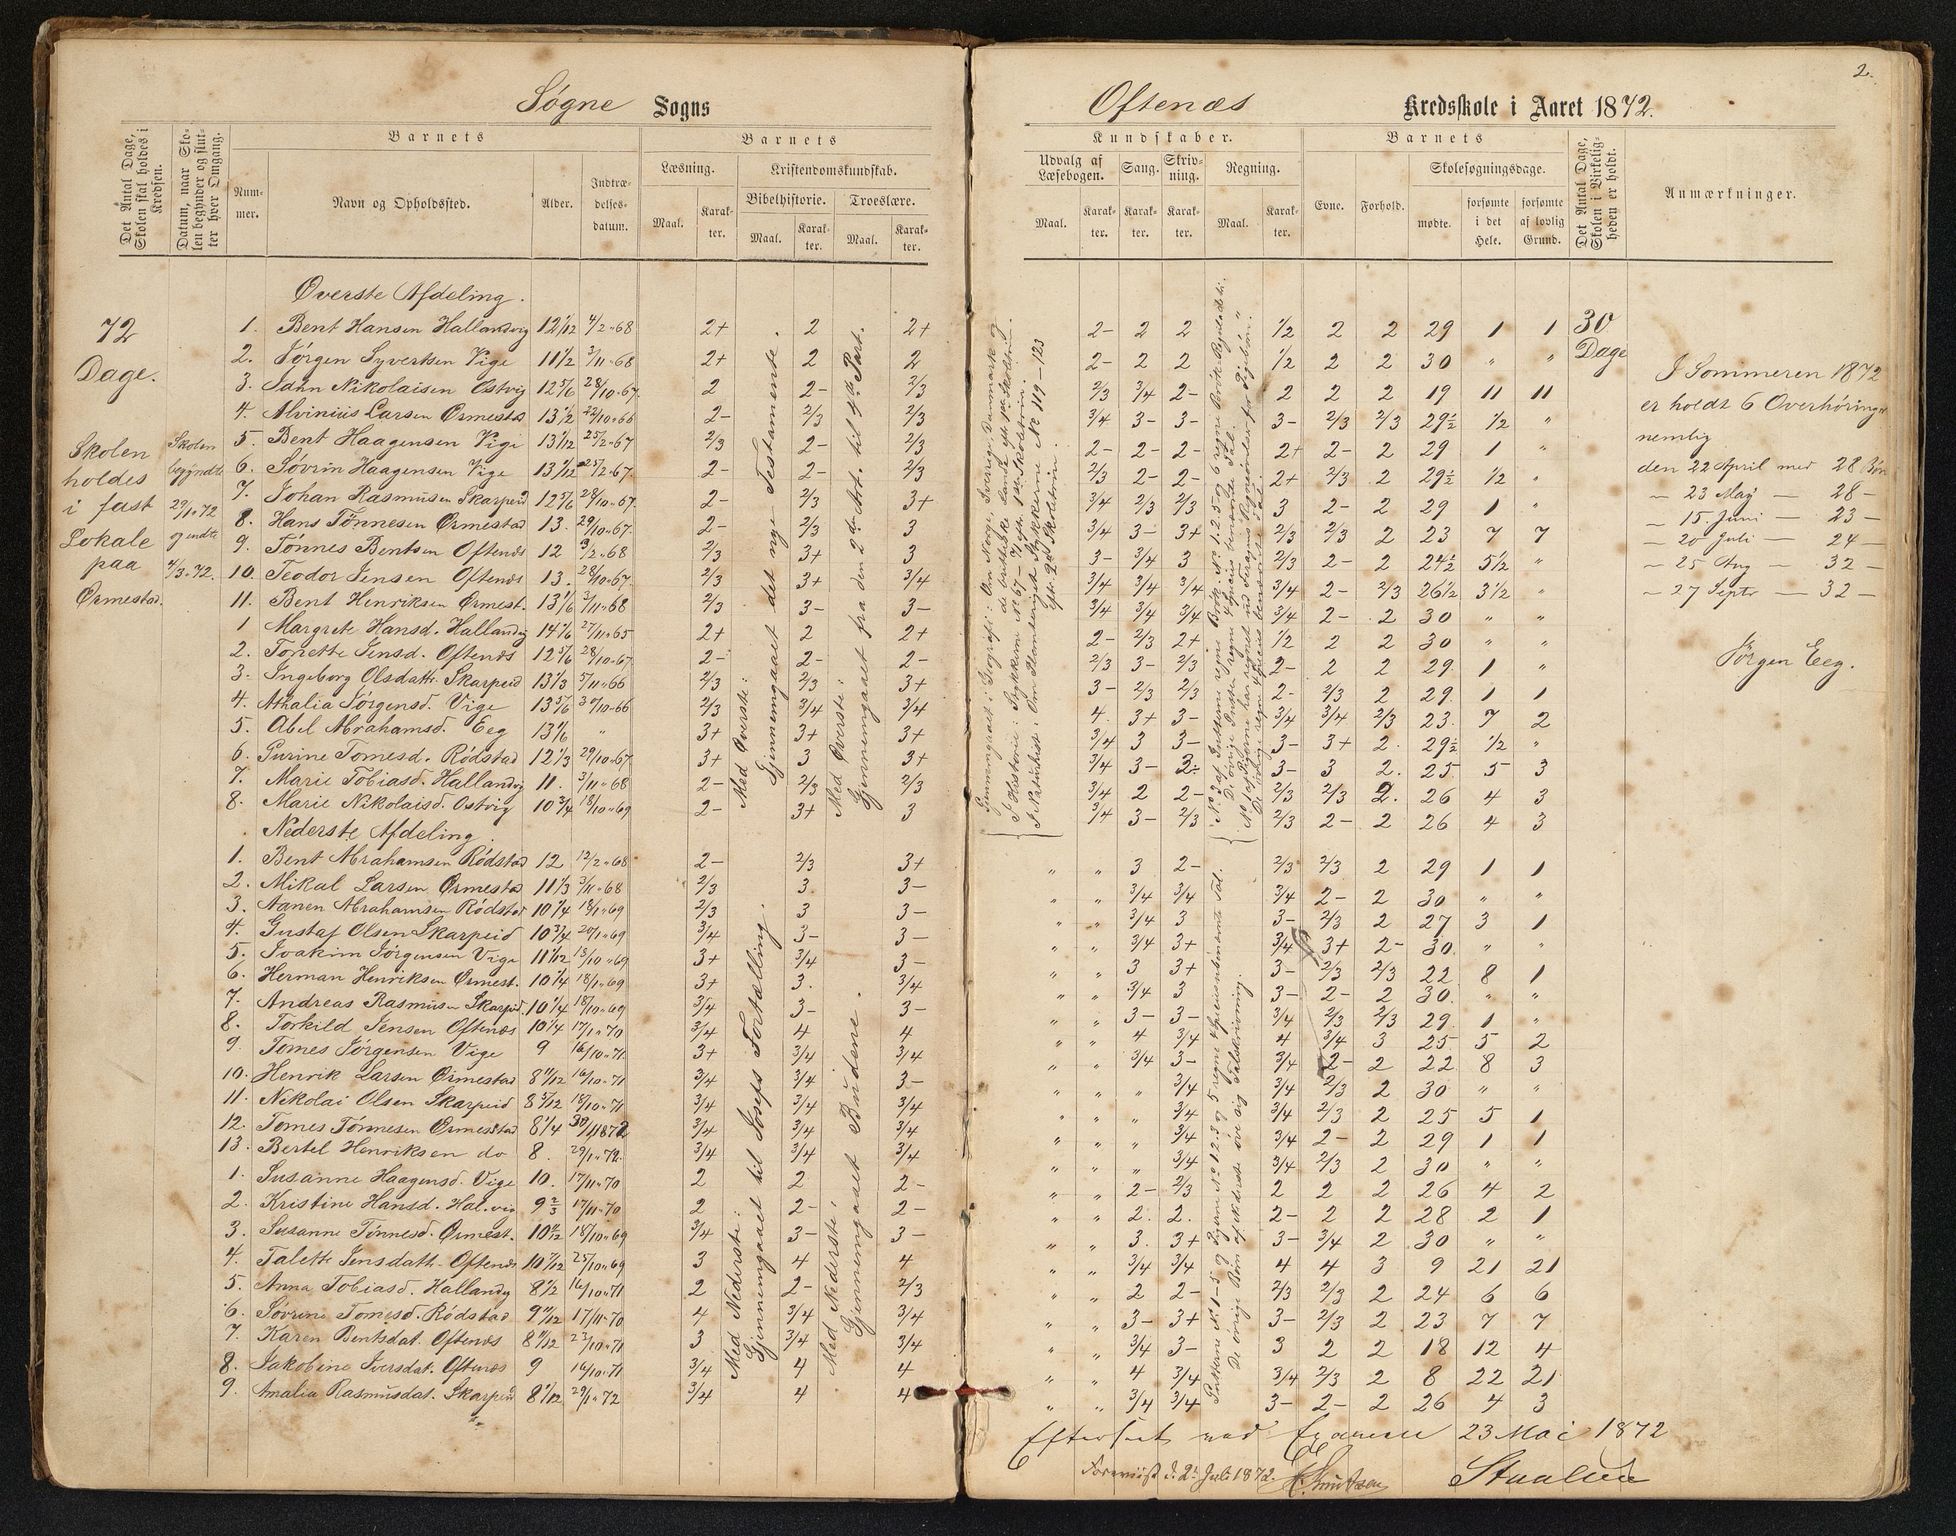 2.
Søgne Sogns
Oftenæs Kredsskole i Aaret 1872.
Det Antal Dage, Skolen skal holdes i Kredsen.
Datum, naar Skolen begynder og slutter hver Omgang.
Barnets
Nummer.
Navn og Opholdssted.
Alder.
Indtrædelsesdatum.
Barnets
Læsning.
Maal.
Karakter.
Kristendomskundskab.
Bibelhistorie.
Maal.
Karakter.
Troeslære.
Maal.
Karakter.
Kundskaber.
Udvalg af Læsebogen.
Maal.
Karakter.
Sang.
Karakter.
Skrivning.
Karakter.
Regning.
Maal.
Karakter.
Barnets
Evne.
Forhold.
Skolesøgningsdage.
mødte.
forsømte i det Hele.
forsømte af lovlig Grund.
Det Antal Dage, Skolen i Virkeligheden er holdt.
Anmærkninger.
72
Dage.
Skolen
holdes
i fast
Lokale
paa
Ormestad.
Skolen
begyndte
29/1 72
og endte
4/3 72.
Øverste Afdeling.
1. Bent Hansen Hallandvig 12 1/12 4/2 68 2+ 2 2+ 2- 2 2 1/2 2 2 29 1 1
2. Jørgen Syvertsen Vige 11 1/2 3/11 68 2+ 2 2 2- 2 2 1/2 2 2 30 " "
3. Jahn Nikolaisen Østvig 12 5/6 28/10 67. 2 2- 2/3 2/3 3/4 2- 2 2 2 19 11 11
4. Alvinius Larsen Ormestad 13 1/2 22/10 66 2- 2/3 2/3 3/4 3- 3- 3- 2/3 2/3 29 1/2 1/2 "
5. Bent Haagensen Vige 13 1/12 25/2 67 2/3 2- 2/3 2- 2- 2- 2+ 2- 2 29 1 "
6. Søvrin Haagensen Vige 13 1/12 25/2 67. 2- 2- 2/3 2/3 2- 2- 2+ 2/3 2 29 1/2 1/2 "
7. Johan Rasmusen Skarpeid 12 5/6 28/10 67. 2- 2/3 3+ 3/4 2/3 2/3 3 2- 2 29 1 "
8. Hans Tønnesen Ormestad 13. 29/10 67. 2- 2/3 3 3/4 3- 3+ 2/3 2/3 2 23 7 7
9. Tønnes Bentsen Oftenæs 12 3/2 68 2/3 3+ 3 3- 3/4 3 2/3 2- 2 24 1/2 5 1/2 "
10. Teodor Jensen Oftenæs 13. 28/10 67. 2/3 3+ 3/4 3/4 3/4 3/4 3/4 2- 2/3 26 1/2 3 1/2 "
11. Bent Henriksen Ormest. 13 1/6 3/11 68 2/3 3- 3- 3/4 3/4 3/4 3/4 2- 2 30 " "
1 Margrete Hansd. Hallandvig 14 1/6 27/11 65 2+ 2 2+ 2- 2/3 2+ 1/2 2 2 30 " "
2. Tonette Jensd. Oftenæs 12 5/6 28/10 67 2- 2- 2- 2/3 3- 2/3 2- 2 2 29. 1 "
3. Ingeborg Olsdattr. Skarpeid 13 1/3 5/11 66 2/3 2/3 3+ 3- 2/3 2/3 2- 2/3 2 29. 1 1
4. Athalia Jørgensd. Vige 13 5/6 30/10 66 2/3 3/4 3/4 4. 3+ 3- 3/4 3/4 2/3 23. 7 2
5. Abel Abrahamsd. Eeg 13 4/6 " 3+ 3+ 3+ 3/4 3 3- 3- 3+ 2. 29 1/2 1/2 "
6. Gurine Tomesd. Rødstad 12 1/3 29/10 67 3+ 3 3+ 3/4 3- 2- 3- 3 2. 25 5 3
7. Marie Tobiasd. Hallandvig 11. 3/11 68 2- 2/3 2/3 3/4 2 2- 2/3 2/3 2. 26 4 3
8. Marie Nikolaisd. Østvig 10 3/4 18/10 69 2- 3+ 3 3/4 3- 2/3 2/3 2- 2 26 4 3
Med Øverste:
Gjennemgaaet det nye Testamente.
Med Øverste:
Gjennemgaaet fra den 2den Art. til 4de Part.
30
Dage
Nederste Afdeling.
1. Bent Abrahamsen Rødstad 12 12/2 68 2- 2/3 3+ " " 3 2- 2/3 2/3 2 29 1 1
2. Mikal Larsen Ormestad 11 1/3 3/11 68 2/3 3. 3- " " 3/4 3/4 3/4 2- 2 30 " "
3. Aanen Abrahamsen Rødstad 10 1/4 18/1 69 2/3 3 3- " " 3/4 3 3- 2/3 2 27 3 1
4. Gustaf Olsen Skarpeid 10 3/4 20/1 69 3/4 3- 3- " " 3/4 3+ 3/4 3+ 2- 30. " "
5. Joakim Jørgensen Vige 11 1/12 13/10 69 3+ 3/4 3- " " 3 3+ 3- 2/3 2/3 22 8 1
6. Herman Henriksen Ormest. 10 1/4 18/1 69 3+ 3. 3/4 " " 3/4 3 3- 2- 2 30. " "
7. Andreas Rasmusen Skarpeid. 10 1/4 18/10 69 3/4 3- 3- " " 3- 3- 3/4 2/3 2/3 29. 1 "
8. Torkild Jensen Oftenæs 10 1/4 17/1 70 3/4 4 4 " " 4 3/4 4 3/4 3 25 5 2
9. Tomes Jørgensen Vige 9 16/10 71 3+ 3/4 3/4 " " 3/4 3- 3/4 2- 2 22. 8 3
10. Henrik Larsen Ormestad 8 11/12 16/10 71 3/4 3/4 3- " " " 3/4 3/4 2/3 2 30 " "
11. Nikolai Olsen Skarpeid 8 5/12 18/10 71 3/4 3/4 3/4 " " " 3/4 3/4 2/3 2 25 5 1
12. Tomes Tønnesen Ormestad 8 1/4 30/1 1872 3/4 3/4 3/4 " " " 3/4 3/4 2- 2 29 1 1
13. Bertel Henriksen do 8. 29/1 72. 3/4 3/4 3/4 " " " 3/4 3/4 2/3 2 30 " "
1. Susanne Haagensd. Vige 10. 17/11 70 2 2 2- " " 2- 2/3 2 2 2 26 4 2
2. Kristine Hansd. Hal.vig 9 2/3 17/11 70 2 2- 2- " " 2. 2. 2- 2 2 28 2 1
3. Susanne Tønnesd. Ormest. 10 11/12 18/10 69 3/4 3- 3- " " 3. 3+ 3- 3/4 2 30 " "
4. Talette Jensdatt. Oftenæs 10 7/12 25/10 69 3 4 4 " " 3/4 3/4 4 4 3 9 21 21
5. Anna Tobiasd. Hallandvig 8 7/12 16/10 71 2 2- 2/3 " " 2 2- 2/3 2/3 2 24 6 6
6. Søvrine Tomesd. Rødstad 9 11/12 17/11 70 4 3/4 3/4 " " 3- 3+ 3- 2/3 2 23 7 7
7. Karen Bentsdat. Oftenæs 8 11/12 23/10 71 3 3/4 3/4 " " 3/4 3- 3 2 2 18 12 4
8. Jakobine Iversdat. Oftenæs 9 16/10 71 3/4 4 4 " " 4 3/4 3/4 2/3 2 8 22 21
9. Amalia Rasmusdat. Skarpeid 8 1/12 29/1 72 3/4 4 4 " " 3/4 3/4 3- 2- 2 26 4 3
Med Nederste:
Gjennemgaaet til Josefs Fortælling.
Med Nederste:
Gjennemgaaet Budene.
I Sommeren 1872
er holdt 6 Overhøringer
nemlig
den 22 April med 28 Børn
" 23 Maj — 28 —
" 15. Juni — 23 —
" 20 Juli — 24 —
" 25 Aug — 32 —
" 27 Septr — 32 —
Jørgen Eeg.
Efterseet ved Examen 23 Mai 1872
Staalere
Foreviist d. 2. Juli 1872. Knudsen